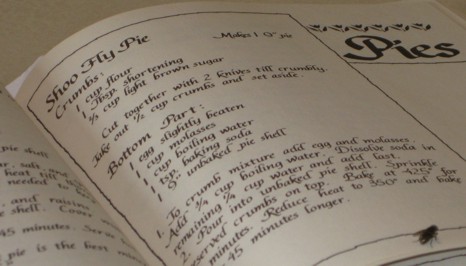 Pies
Shoo Fly Pie
Makes 1 9" pie
Crumbs:
1 cup flour
1 Tbsp. shortening
⅔ cup light brown sugar
Cut together with 2 knives till crumbly.
Take out ½ cup crumbs and set aside.
Bottom Part:
1 egg slightly beaten
1 cup molasses
1 cup boiling water
1 tsp. baking soda
1 9" unbaked pie shell
1. To crumb mixture add egg and molasses.
Add ¾ cup boiling water. Dissolve soda in
remaining ¼ cup water and add last.
2. Pour into unbaked pie shell. Sprinkle
reserved crumbs on top. Bake at 425° for
minutes. Reduce heat to 350° and bake
45 minutes longer.
pie shell
salt, and
heat till
needed to
and raisins
shell. Cover
45 minutes. Serve
pie is the best